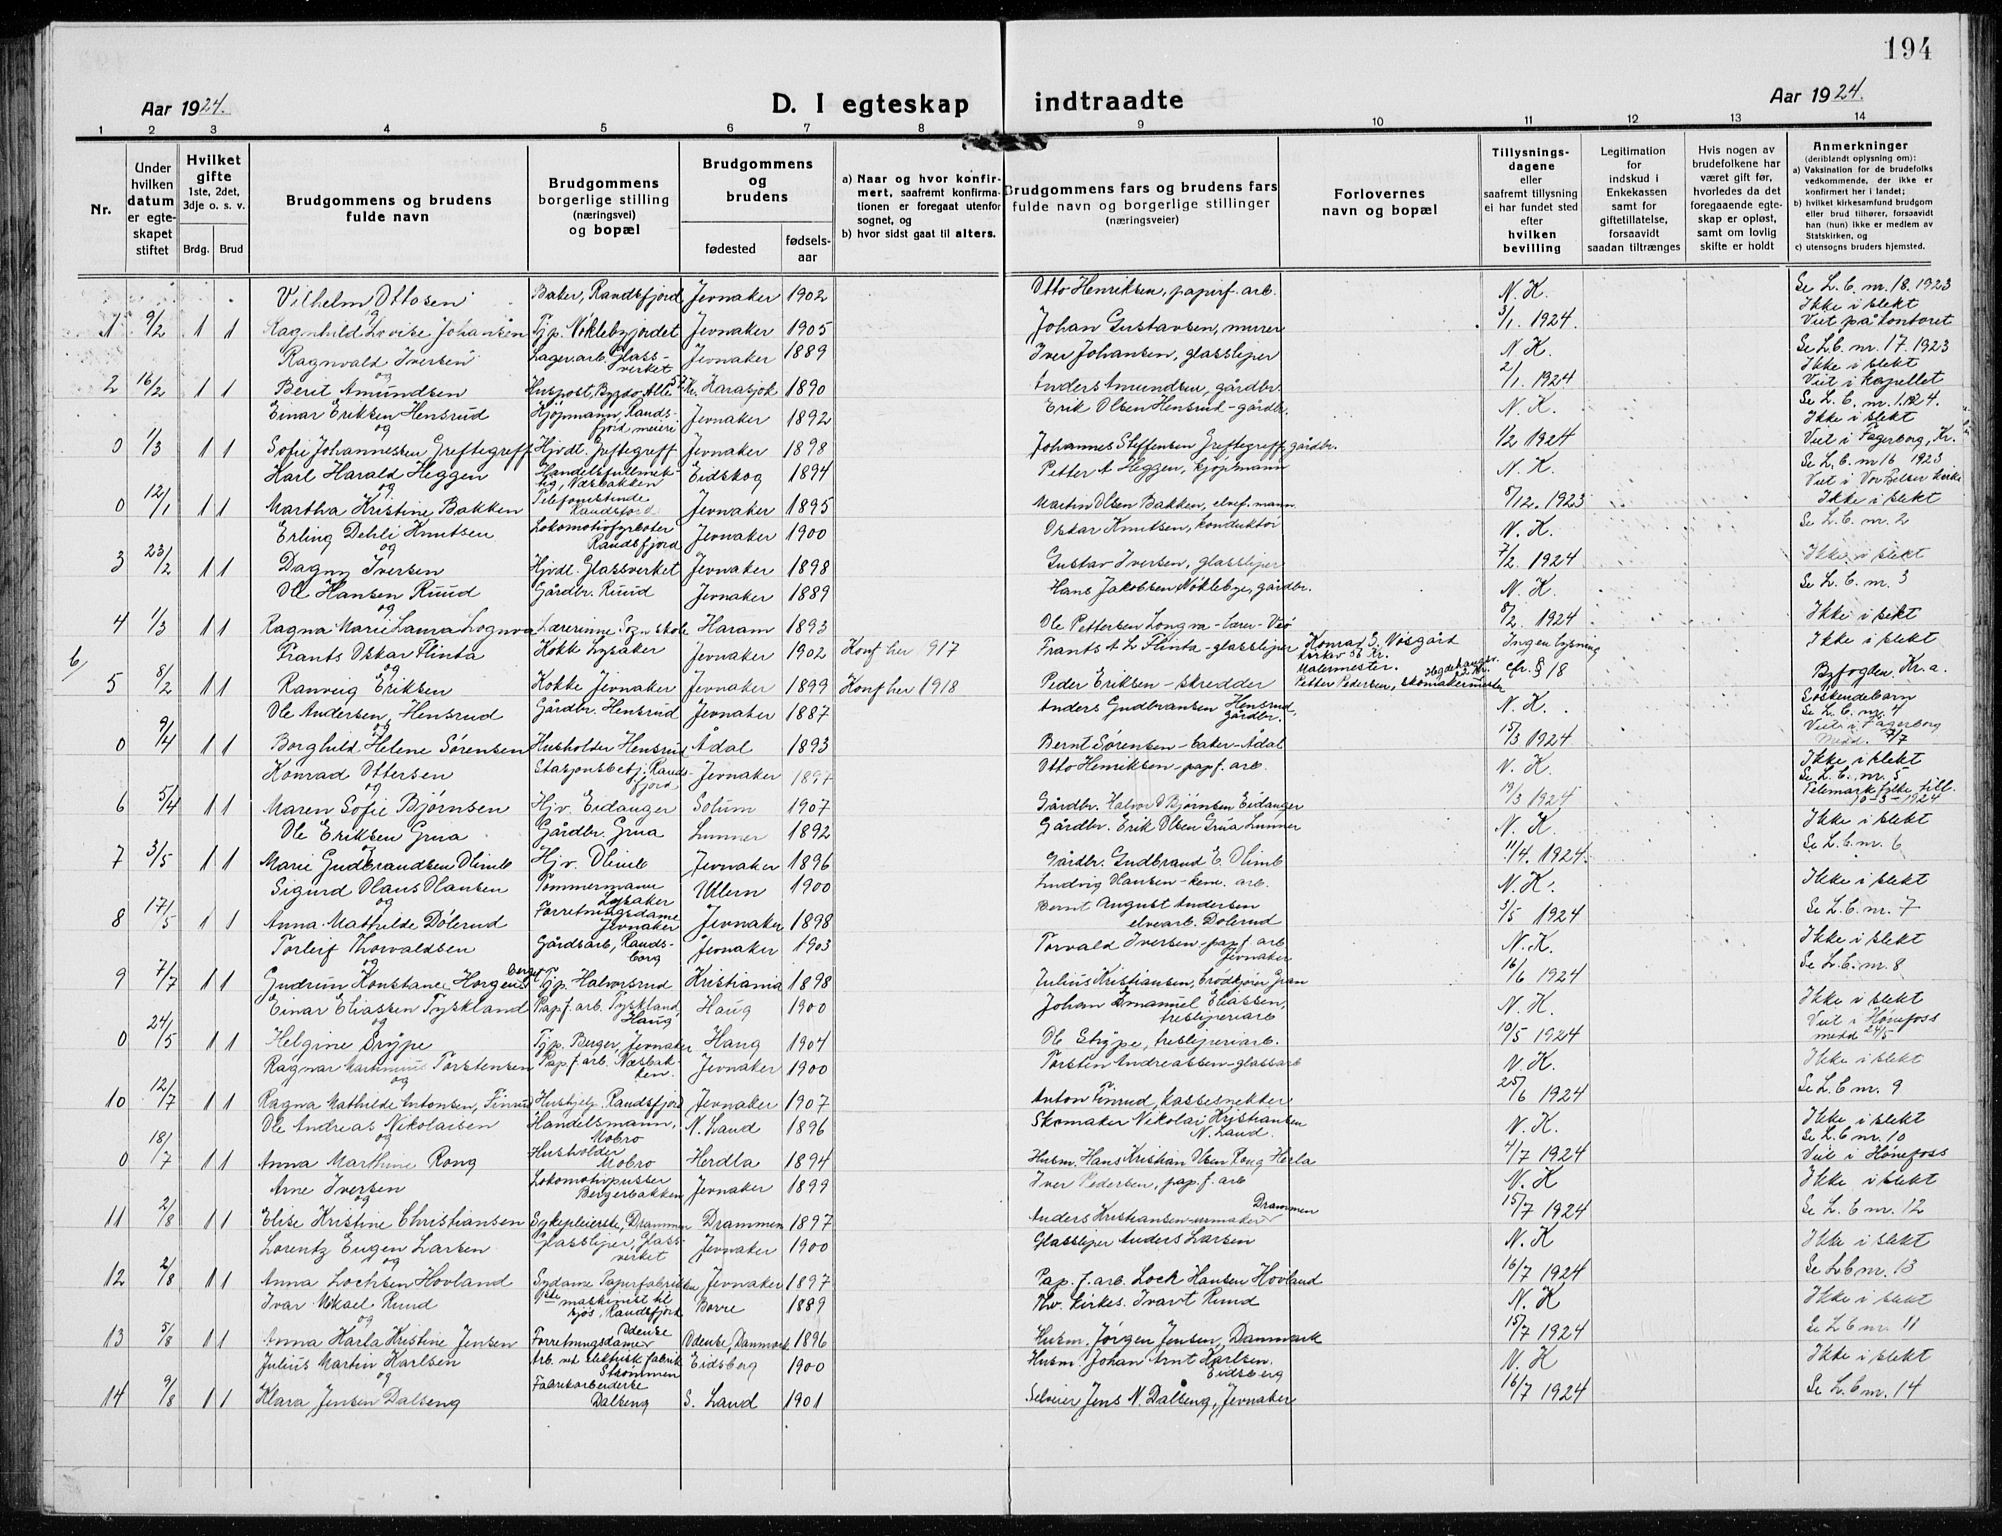 194
Aar 1924.
D. I egteskap indtraadte
Aar 1924.
1 2 3 4 5 6 7 8 9 10 11 12 13 14
Nr.
Under hvilken datum er egteskapet stiftet
Hvilket gifte 1ste, 2det, 3dje o. s. v.
Brdg. Brud
Brudgommens og brudens fulde navn
Brudgommens borgerlige stilling (næringsvei) og bopæl
Brudgommens og brudens
fødested fødselsaar
a) Naar og hvor konfirmert, saafremt konfirmationen er foregaat utenfor sognet, og
b) hvor sidst gaat til alters.
Brudgommens fars og brudens fars fulde navn og borgerlige stillinger (næringsveier)
Forlovernes navn og bopæl
Tillysningsdagene eller saafremt tillysning ei har fundet sted efter hvilken bevilling
Legitimation for indskud i Enkekassen samt for giftetillatelse, forsaavidt saadan tiltrænges
Hvis nogen av brudefolkene har været gift før, hvorledes da det foregaaende egteskap er opløst, samt om lovlig skifte er holdt
Anmerkninger (deriblandt oplysning om):
a) Vaksination for de brudefolks vedkommende, der ikke er konfirmert her i landet;
b) hvilket kirkesamfund brudgom eller brud tilhører, forsaavidt han (hun) ikke er medlem av Statskirken, og
c) utensogns bruders hjemsted.
Vilhelm Ottosen Baker, Randsfjord Jevnaker 1902 Otto Henriksen, papirf. arb. N. K. Se L. b. nr. 18. 1923
og Ikke i slekt
1 9/2 1 1 Ragnhild Lovise Johansen Tjp. Nøklebyjordet Jevnaker 1905 Johan Gustavsen, murer 3/1. 1924. Viet på kontoret
Ragnvald Iversen Lagerarb. Glassverket Jevnaker 1889 Iver Johansen, glassliper N. K. Se L. b. nr. 17. 1923
og Ikke i slekt
2 16/2 1 1 Berit Amundsen Huspost, Bygdø Alle Kr. Karasjok 1890 Anders Amundsen, gårdbr. 2/1. 1924 Viet i kapellet
Einar Eriksen Hensrud Kjøpmann, Randsfjord meieri Jevnaker 1892 Erik Olsen Hensrud - gårdbr. N. K. Se L. b. nr. 1. 1924.
og Ikke i slekt
0 1/3 1 1 Sofie Johannessen Greftegreff Hjvdt. Greftegreff Jevnaker 1898 Johannes Steffensen Greftegreff, gårdbr. 1/2 1924 Viet i Fagerborg, Kr.
Karl Harald Heggen Handelsfullmektig, Næsbakken Eidskog 1894 Petter A Heggen, kjøpmann N. K. Se L. b. nr 16 1923
og Viet i Vor Frelser kirke
0 12/1 1 1 Martha Kristine Bakken Telefonistinde Randsfjord Jevnaker 1895 Martin Olsen Bakken, elvef. mann 8/12. 1923 Ikke i slekt
Erling Dehli Knutsen Lokomotivfyrbøter Randsfjord Jevnaker 1900 Oskar Knutsen, konduktør N. K. Se L. b. nr. 2
og
3 23/2 1 1 Dagny Iversen Hjvdt. Glassverket Jevnaker 1898 Gustav Iversen, glassliper 7/2. 1924 Ikke i slekt
Ole Hansen Ruud Gårdbr. Ruud Jevnaker 1889 Hans Jakobsen Nøklebye, gårdbr. N. K. Se L. b. nr. 3
og
4 1/3 1 1 Ragna Marie Laura Longva Lærerinne Sogn skole Haram 1893 Ole Pettersen Longva - lærer - 8/2. 1924 Ikke i slekt
6/ Frants Oskar Flinta Kokk Lysaker Jevnaker 1902 Konf her 917 Frants A L Flinta - glassliper Konrad S. Nøsgård Ingen lysning Ikke i slekt
og Malermester.
5 8/2 1 1 Ranveig Eriksen Kokke Jevnaker Jevnaker 1899 Konf her 1918 Peder Eriksen - skredder Petter Pedersen, skomakermester cfr. § 18 Byfogden Kr.a.
Ole Andersen, Hensrud Gårdbr. Hensrud Jevnaker 1887 Anders Gudbransen Hensrud, gårdbr. N. K. Søskendebarn
og Se L. b. nr. 4
0 9/4 1 1 Borghild Helene Sørensen Husholder Hensrud Ådal 1893 Bernt Sørensen - baker - Ådal 15/3 1924 Viet i Fagerborg
Konrad Ottersen Stasjonsbetj. Randsfjord Jevnaker 1897 Otto Henriksen - papf. arb. N. K. Ikke i slekt
og Se L. b. nr. 5
6 5/4 1 1 Maren Sofie Bjørnsen Hjv. Eidanger Solum 1907 Gårdbr. Halvor O Bjørnsen Eidanger 19/3 1924 Telemark fylke till. 10-3-1924
Ole Eriksen Grua Gårdbr. Grua Lunner 1892 Gårdbr. Erik Olsen Grua Lunner N. K. Ikke i slekt
og
7 3/5 1 1 Marie Gudbrandsen Olimb Hjv. Olimb Jevnaker 1896 Gårdbr. Gudbrand E. Olimb 11/4. 1924. Se L. b. nr. 6
Sigurd Hans Hansen Tømmermann Lysaker Ullern 1900 Ludvig Hansen - kem. arb. N. K. Ikke i slekt
og
8 17/5 1 1 Anna Mathilde Dølerud Forretningsdame Jevnaker Jevnaker 1898 Bernt August Andersen elvearb. Dølerud 3/5 1924 Se L. b. nr. 7
Torleif Thorvaldsen Gårdsarb, Randsborg Jevnaker 1903 Torvald Iversen - papf. arb Jevnaker N. K. Ikke i slekt
og
9 7/7 1 1 Gudrun Konstance Horgensberget Tjp. Halvorsrud Kristiania 1898 Julius Kristiansen, brødkjører Gran 16/6 1924 Se L. b. nr. 8
Einar Eliassen Tyskland Papf. arb. Tyskland, Haug Haug 1900 Johan Emanuel Eliassen, tresliperiarb N. K. Ikke i slekt
og Viet i Hønefoss
0 24/5 1 1 Helgine Grype Tjp. Buger, Jevnaker Haug 1904 Ole Grype, tresliperiarb. 10/5 1924 medd 24/5
Ragnar Martinius Torstensen Papf. arb. Næsbakken Jevnaker 1900 Torsten Andreassen - glassarb N. K. Ikke i slekt
og
10 12/7 1 1 Ragna Mathilde Antonsen, Finrud Hushjelp. Randsfjord Jevnaker 1907 Anton Finrud, kassesnekker 25/6 1924 Se L. b nr. 9
Ole Andreas Nikolaisen Handelsmann, Mobro N. Land 1896 Skomaker Nikolai Kristiansen N. Land. N. K. Ikke i slekt
og Se L. b nr. 10
0 18/7 1 1 Anna Marthine Rong Husholder Mobro Herdla 1894 Husm. Hans Kristian Olsen Rong Herla 4/7 1924 Viet i Hønefoss
Arne Iversen Lokomotivpusser Bergerbakken Jevnaker 1899 Iver Pedersen, pap. f. arb N. K Ikke i slekt
og
11 2/8 1 1 Elise Kristine Christiansen Sykepleierske, Drammen Drammen 1897 Anders Kristiansen - urmaker Drammen 15/7 1924 Se L. b nr. 12
Lorentz Eugen Larsen Glassliper, Glassverket Jevnaker 1900 Glassliper Anders Larsen N. K Ikke i slekt
og
12 2/8 1 1 Anna Lochsen Hovland Sydame Papirfabrikken Jevnaker 1897 Pap. f. arb. Lock Hansen Hovland 16/7 1924 Se L b nr. 13
Ivar Mikael Ruud 1ste maskinist til sjøs, Randsfjord Borre 1889 Kirkes. Ivart Ruud N. K Ikke i slekt
og
13 5/8 1 1 Anna Karla Kristine Jensen Forretningsdame Odense Odense, Danmark 1896 Husm. Jørgen Jensen, Danmark 15/7 1924 Se L b nr. 11
Julius Martin Karlsen Arb. ved Elektrisk fabrik Strømmen Eidsberg 1900 Husm. Johan Arnt Karlsen. Eidsberg N. K Ikke i slekt
og
14 9/8 1 1 Klara Jensen Dalseng Fabrikarbeiderske Dalseng S. Land 1901 Selveier Jens N. Dalseng, Jevnaker 16/7 1924 Se L. b nr. 14